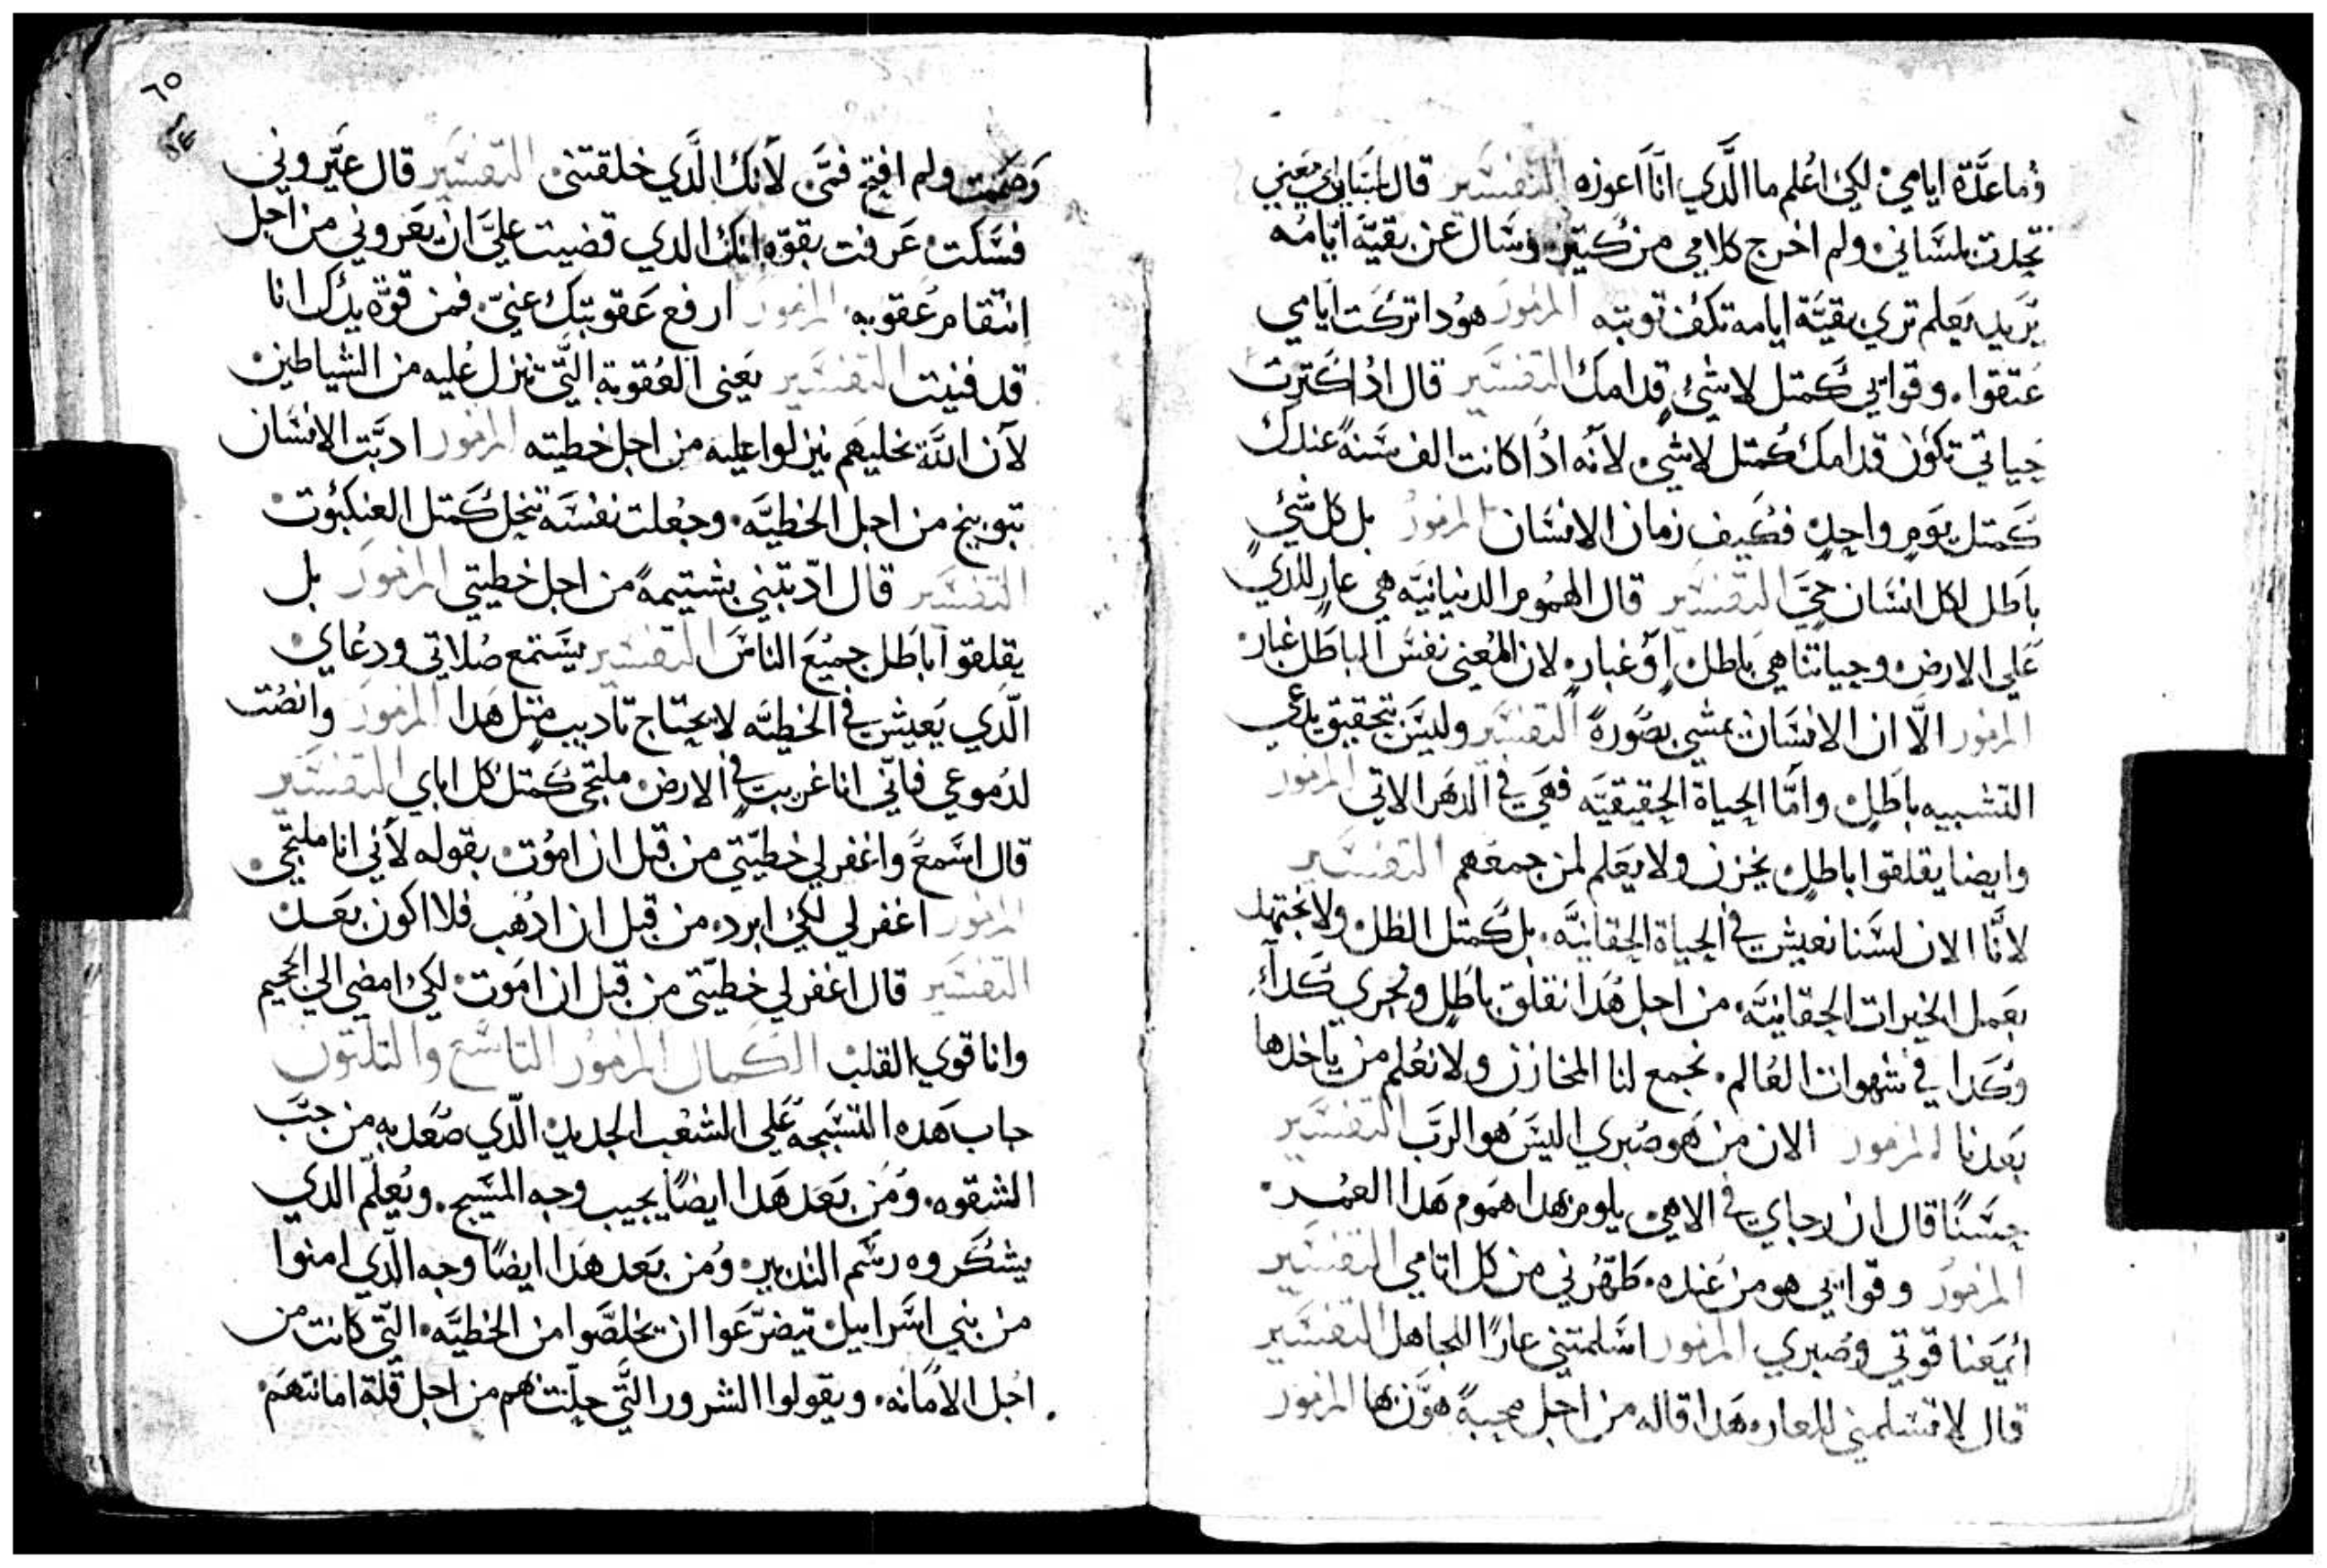 وما عدَّة ايامي لكي اعلم ما الَّدي انا اعوزه التفسير قال بلساني يعني
تحدتت بلساني ولم اخرج كلامي من كتير وسال عن بقيَّة ايامه
يريد يعلم تري بقيَّة ايامه تكفي توبته المزمور هودا تركت ايامي
عتقوا. وقوامي كمتل لاشي قدامك التفسير قال ادا كترت
حياتي تكون قدامك كمتل لاشي لانه ادا كانت الف سنة عندك
كمتل يوم واحد فكيف زمان الانسان المزمور بل كل شي
باطل لكل انسان حي التفسير قال الهموم الدنيانيه هي عار للدي
علي الارض وحياتنا هي باطل او غبار لان المعني نفس الباطل غبار
المزمور الَّا ان الانسان يمشي بصورة التفسير وليس بتحقيق يدعي
التشبيه باطل واما الحياة الحقيقيَّه فهي في الدهر الاتي المزمور
وايضا يقلقوا باطل يخزن ولا يعلم لمن جمعهم التفسير
لانَّا الان لسنا نعيش في الحياة الحقانيَّه. بل كمتل الظل ولا نجتهد
بعمل الخيرات الحقانيَّه من اجل هدا نقلق باطل ونجري كدا
وكدا في شهوات العالم. نجمع لنا المخازن ولا نعلم من ياخدها
بعدنا المزمور الان من هو صبري اليس هو الرب التفسير
حسنًا قال ان رجاي في الاهي يلومن هدا هموم هدا العمر.
المزمور وقوامي هو من عنده. طهرني من كل اتامي التفسير
ايمعنا قوتي وصبري المزمور اسلمتني عارًا للجاهل التفسير
قال لا تسلمني للعار هدا قاله من اجل محبة هوَّن بها المزمور
٦٥
وصمت ولم افتح فمي لانك الَّدي خلقتني التفسير قال عيَّروني
فسكت عرفت بقوه انك الدي قضيت عليَّ ان يعيروني من اجل
انتقام عقوبه المزمور ارفع عقوبتك عنيّ فمن قوة يدك انا
قد فنيت التفسير يعني العقوبة التَّي تنزل عليه من الشياطين
لان اللَّه يخليهم ينزلوا عليه من اجل خطيته المزمور ادبَّت الانسان
بتوبيخ من اجل الخطيَّه. وجعلت نفسه تنحل كمتل العنكبوت
التفسير قال ادّبتني بشتيمة من اجل خطيتي المزمور بل
يقلقوا باطل جميع الناس التفسير يستمع صلاتي ودعاي
الَّدي يعيش في الخطيَّه لا يحتاج تاديب متل هدا المزمور وانصت
لدموعي فانّي انا غريب في الارض ملتجي كمتل كل اباي التفسير
قال اسمع واغفر لي خطيَّتي من قبل ان اموت بقوله لاني انا ملتجي
المزمور اغفر لي لكي ابرد من قبل ان ادهب فلا اكون بعد
التفسير قال اغفر لي خطيّتي من قبل ان اموت لكي امضي الي الجحيم
وانا قوي القلب الكمال المزمور التاسع والتلتون
جاب هده التسبحة علي الشعب الجديد الّدي صعد به من جبّ
الشقوه. ومن بعد هدا ايضًا يجيب وجه المسيح. ويعلّم الدي
يشكروه رسم التدبير ومن بعد هدا ايضًا وجه الَّدي امنوا
من بني اسراييل تيضرّعوا ان يخلصَّوا من الخطيَّه التّي كانت من
اجل الامانه. ويقولوا الشرور التَّي حلّت بهم من اجل قلة امانتهم